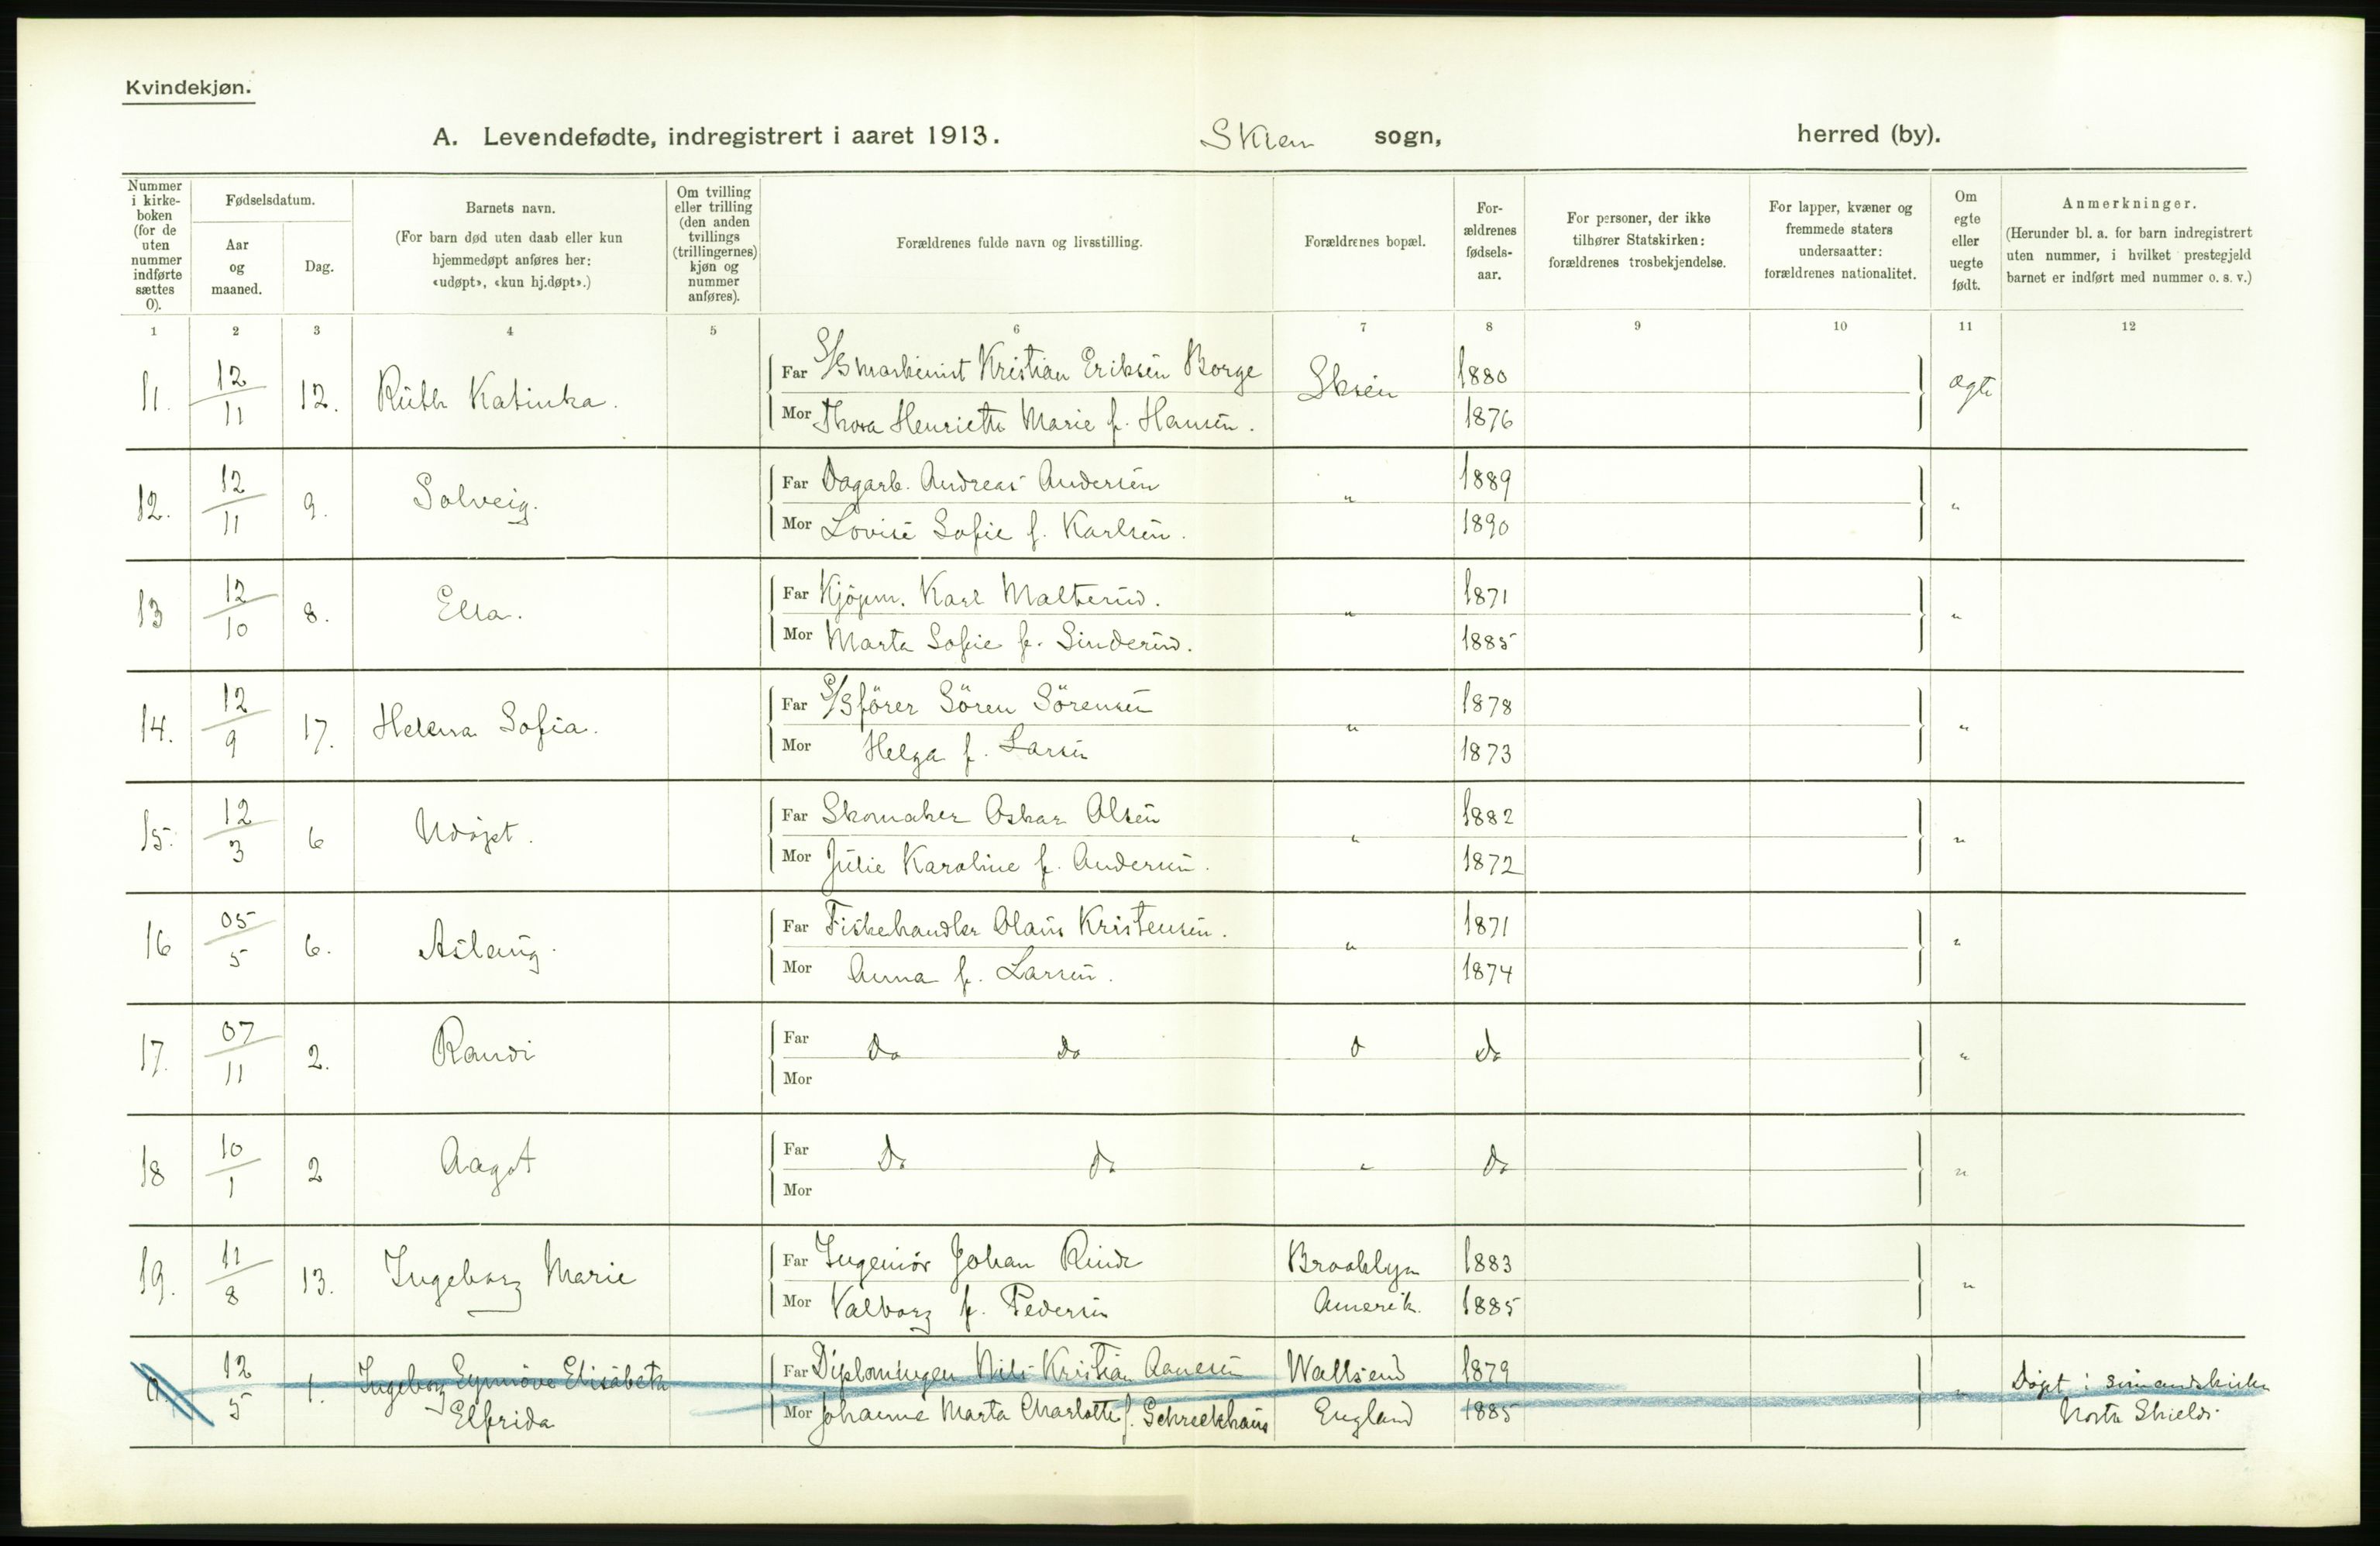 Kvindekjøn.
A. Levendefødte, indregistrert i aaret 1913. Skien sogn, herred (by).
Nummer i kirke-boken (for de uten nummer indførte sættes 0).
Fødselsdatum.
Aar og maaned.
Dag.
Barnets navn.
(For barn død uten daab eller kun hjemmedøpt anføres her: «udøpt», «kun hj.døpt».)
Om tvilling eller trilling (den anden tvillings (trillingernes) kjøn og nummer anføres).
Forældrenes fulde navn og livsstilling.
Forældrenes bopæl.
For-ældrenes fødsels-aar.
For personer, der ikke tilhører Statskirken: forældrenes trosbekjendelse.
For lapper, kvæner og fremmede staters undersaatter: forældrenes nationalitet.
Om egte eller uegte født.
Anmerkninger.
(Herunder bl. a. for barn indregistrert uten nummer, i hvilket prestegjeld barnet er indført med nummer o. s. v.)
1 2 3 4 5 6 7 8 9 10 11 12
11. 12/11 12. Ruth Katinka. Far S/S maskinist Kristian Eriksen Borge Skien 1880 ægte
Mor Thora Henriette Marie f. Hansen. 1876
12. 12/11 9. Solveig. Far Dagarb. Andreas Andersen " 1889 "
Mor Lovise Sofie f. Karlsen. 1890
13 12/10 8. Ella. Far Kjøpm. Karl Malterud. " 1871 "
Mor Marta Sofie f. Sinderud. 1885
14. 12/9 17. Helena Sofia. Far S/S förer Sören Sörensen " 1878 "
Mor Helga f. Larsen 1873
15. 12/3 6 Udøpt. Far Skomaker Oskar Olsen " 1882 "
Mor Julie Karoline f. Andersen. 1872
16 05/5 6. Aslaug. Far Fiskehandler Olaus Kristensen. " 1871 "
Mor Anna f. Larsen. 1874
17. 07/11 2. Randi Far Do Do D Do "
Mor
18 10/1 2 Aagot Far Do do " Do "
Mor
19. 11/8 13. Ingeborg Marie Far Ingeniør Johan Rinde Brooklyn 1883 "
Mor Valborg f. Pedersen Amerik. 1885
0. 12/5 1. Ingeborg Synnøve Elisabeta Far Diplomingen Nils Kristian Aanesen Wallsend 1879 " Døpt i sømandskirken
Elfrida Mor Johanne Marta Charlotte f. Schreekhaus England 1885 North Shields.